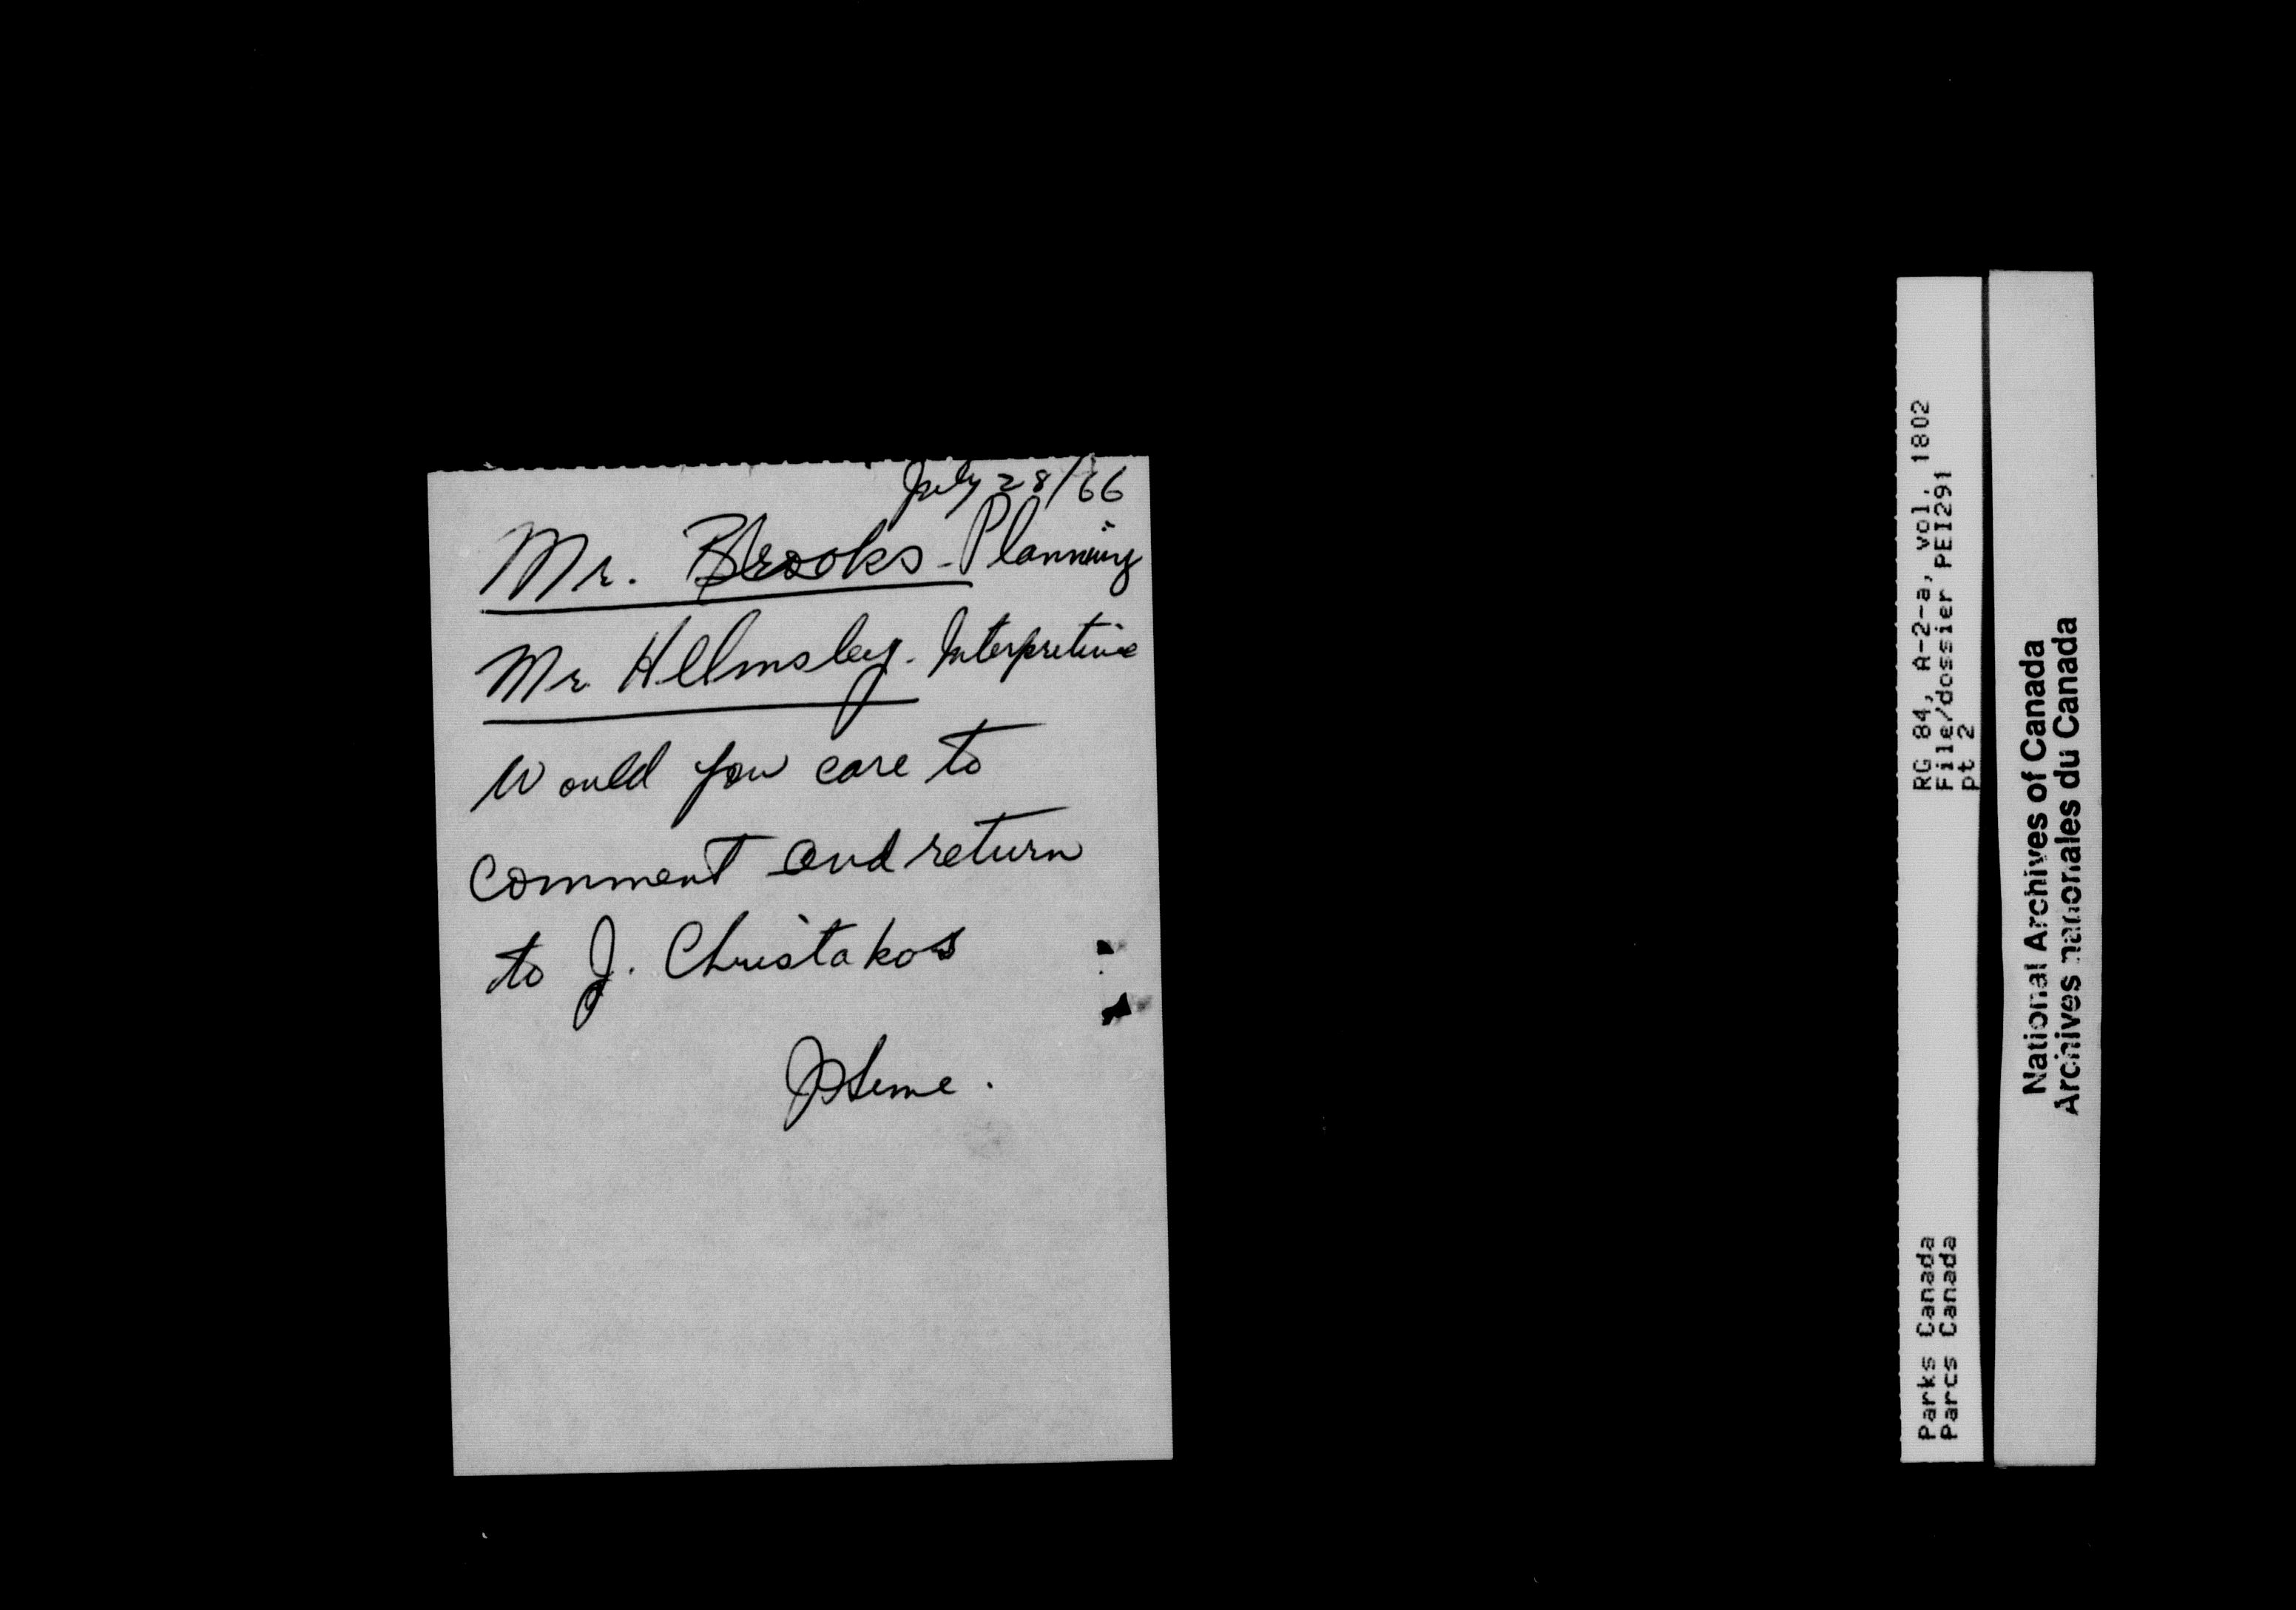 July 28/66
Mr. Brooks - Planning
Mr Helmsley - Interpretive
Would you care to
comment and return
to J. Christakos
RG 84, A-2-a, vol. 1802
File/dossier PEI291
pt 2
Parks Canada
Parcs Canada
National Archives of Canada
Archives nationales du Canada